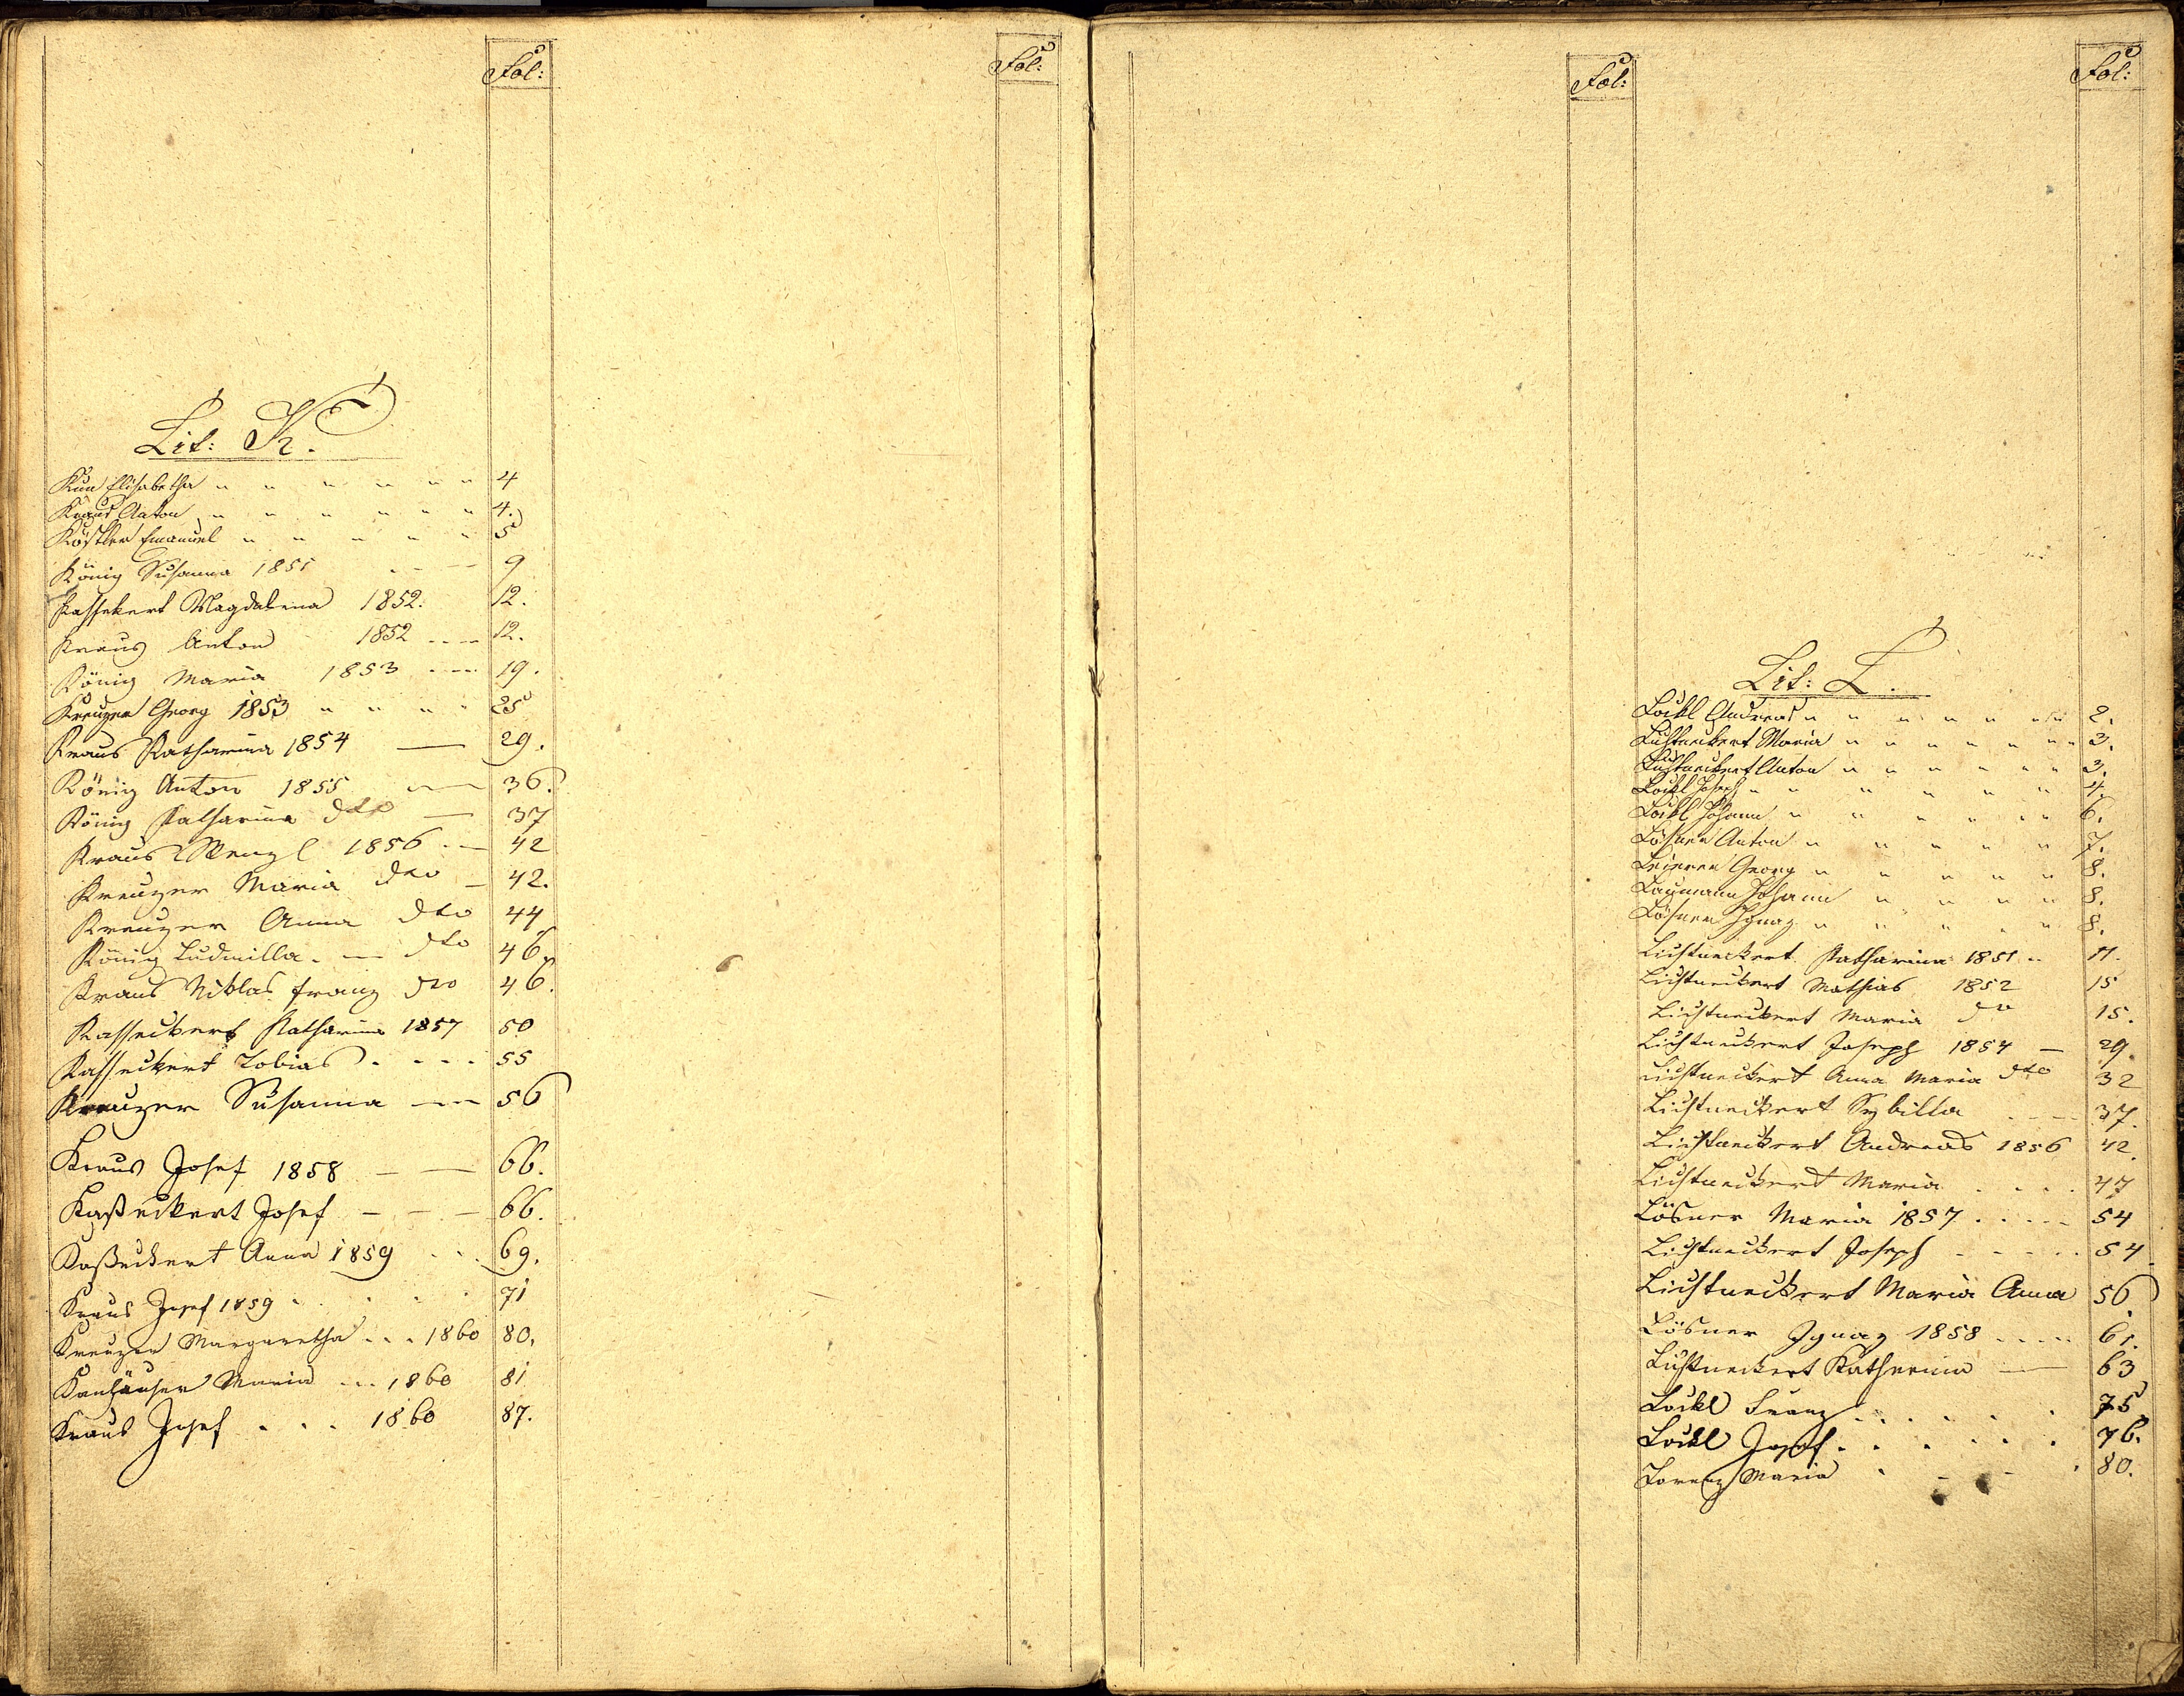 Fol:
Fol:
Lit: K.
Kun Elisabetha " " " " " " 4
Kraus Anton " " " " " " 4.
Köstler Emanuel " " " " " 5
König Susanna 1851 . - — 9
Kassekert Magdalena 1852. 12.
Kraus Anton 1852 .... 12.
König Maria 1853 .-.- 19.
Kreuzer Georg 1853 " " " " 25
Kraus Katharina 1854 — 29.
König Anton 1855 -.— 36.
König Katharina dto — 37
Kraus Wenzl 1856 . — 42
Kreuzer Maria dto — 42.
Kreuzer Anna dto 44
König Ludmilla . — dto 46.
Kraus Niklas Franz dto 46.
Kasseckert Katharina 1857 50
Kasseckert Tobias . . . . 55
Kreuzer Susanna -.— 56
Kraus Josef 1858 — — 66.
Kaßeckert Josef — — — 66.
Kaßeckert Anna 1859 . . . 69.
Kraus Josef 1859 . . . . 71
Kreuzer Margaretha . . . 1860 80.
Kanhäuser Maria ... 1860 81
Kraus Josef . . . 1860 87.
Fol:
Fol:
Lit: L.
Lockl Andreas " " " " " " " 2.
Lichtneckert Maria " " " " " " " 3.
Lichtneckert Anton " " " " " " 3.
Lockl Joseph " " " " " " 4.
Lockl Johann " " " " " " 6.
Lösner Anton " " " " " 7.
Georg " " " " " 8.
Laumann Johann " " " " 8.
Lösner Ignaz " " " " " 8.
Lichtneckert Katharina 1851 .. 11.
Lichtneckert Mathias 1852 15
Lichtneckert Maria dto 15.
Lichtneckert Joseph 1854 — 29.
Lichtneckert Anna Maria dto 32
Lichtneckert Sybilla . - — 37.
Lichtneckert Andreas 1856 42.
Lichtneckert Maria . . . . 47
Lösner Maria 1857 . . . . . 54
Lichtneckert Joseph - - - - . 54
Lichtneckert Maria Anna 56
Lösner Ignaz 1858 ..... 61.
Lichtneckert Katherina — 63
Lockl Franz . . . . . . 75
Lockl Josef . . . . . . 76.
Lorenz Maria . - - . 80.